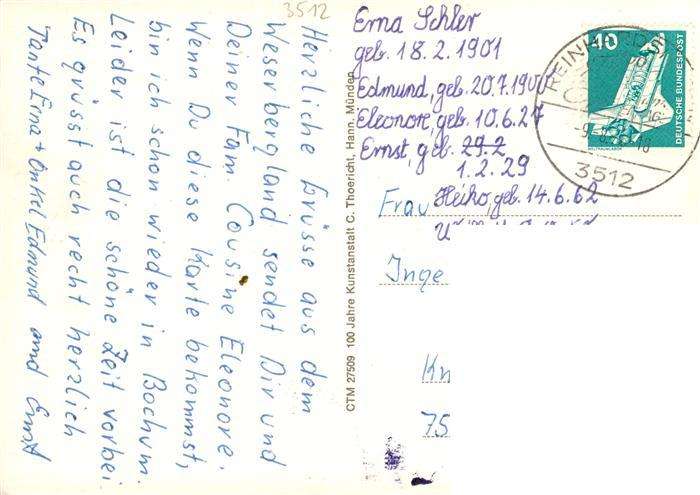 3512
Herzliche Grüsse aus dem
Weserbergland sendet Dir und
Deiner Fam. Cousine Eleonore.
Wenn Du diese Karte bekommst,
bin ich schon wieder in Bochum.
Leider ist die schöne Zeit vorbei
Es grüsst auch recht herzlich
Tante Erna + Onkel Edmund und Ernst
CTM 27509 100 Jahre Kunstanstalt C. Thoericht, Hann. Münden
Erna Schler
geb. 18.2.1901
Edmund, geb. 20.7.1900
Eleonore, geb. 10.6.27
Ernst, geb. 29.2
1.2.29
Heiko, geb. 14.6.62
Frau
Inge
Kn
75
40
DEUTSCHE BUNDESPOST
3512